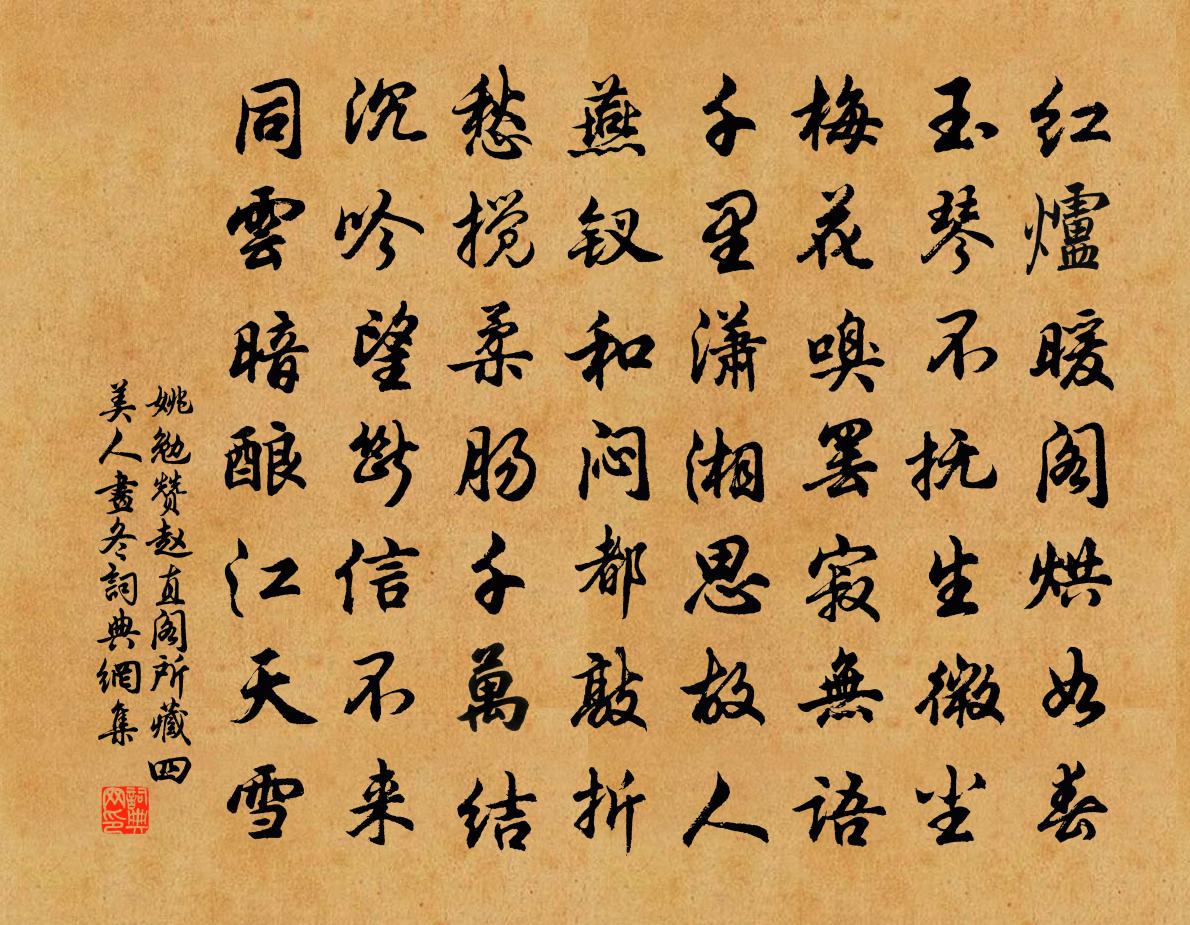 红爐暖阁烘如春
玉琴不抚生微尘
梅花嗅罢寂無语
千里潇湘思故人
燕钗和闷都敲折
愁搅柔肠千萬结
沉吟望断信不来
同雲暗酿江天雪
姚勉赞赵直阁所藏四
美人畫冬詞典網集
詞典网印